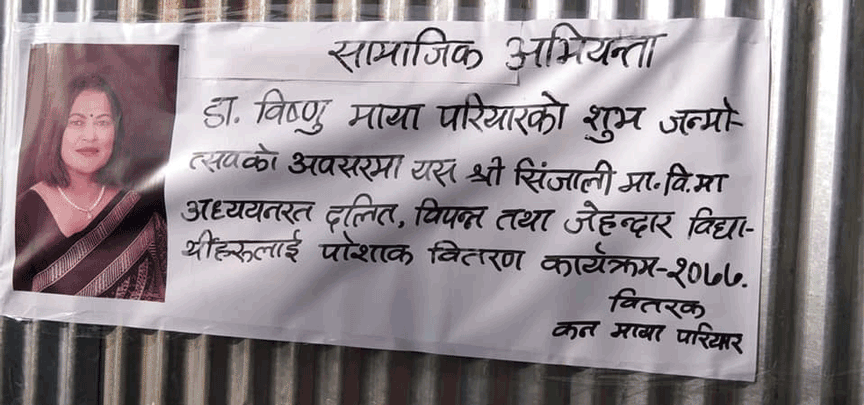 सामाजिक अभियन्ता
डा. विष्णु माया परियारको शुभ जन्मो-
त्सवको अवसरमा यस श्री सिंजाली मा.वि.मा
अध्ययनरत दलित, विपन्न तथा जेहन्दार विद्या-
र्थीहरुलाई पोशाक वितरण कार्यक्रम-२०७७.
वितरक
कन माया परियार